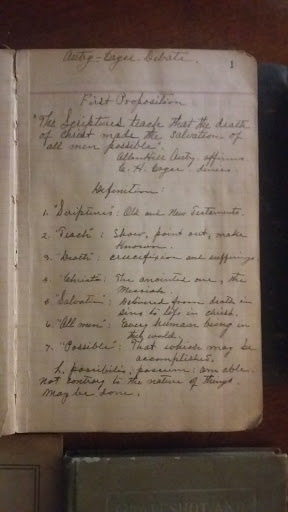 Autry-Cayce Debate.
1
First Proposition
"The Scriptures teach that the death
of Christ made the salvation of
all men possible".
Allen Hill Autry, affirms
C. H. Cayce, denies.
Definition:
1. "Scriptures": Old and New Testaments.
2. "Teach": Show, point out, make
known.
3. "Death": crucifixion and sufferings.
4. "Christ": The anointed one, the
Messiah.
5. "Salvation": Delivered from death in
sins to life in Christ.
6. "All men": Every human being in
the world.
7. "Possible": That which may be
accomplished.
L. possibilis; possum: am able.
Not contrary to the nature of things.
May be done.